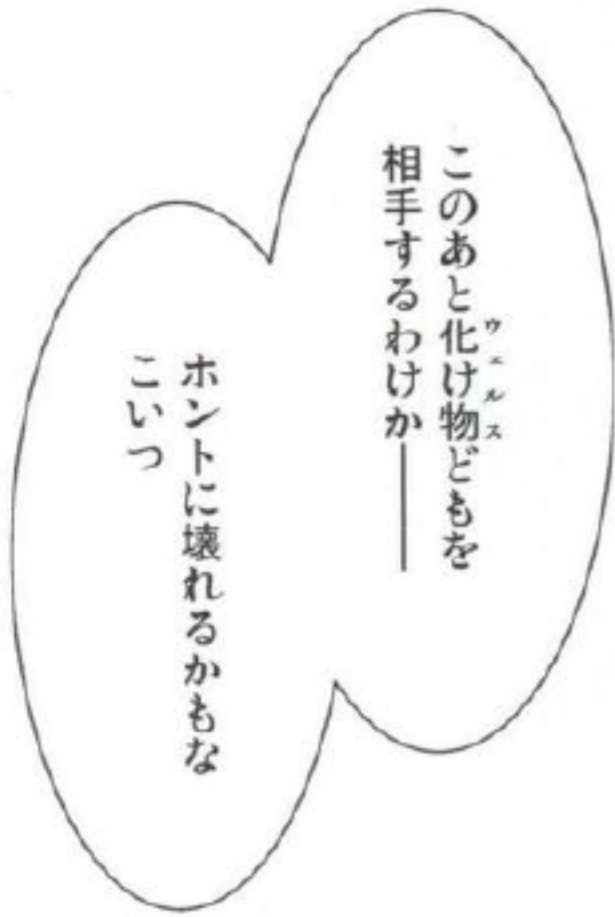 このあと化け物どもを
ウェルス
相手するわけか――
ホントに壊れるかもな
こいつ